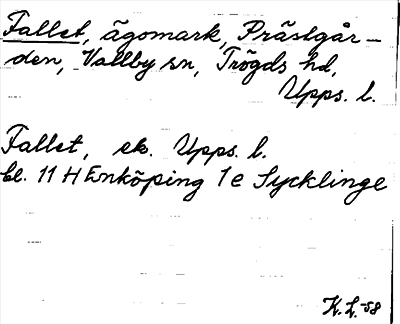 Fallet, ägomark, Prästgår-
den, Vallby sn, Trögds hd,
Upps. l.
Fallet, ek. Upps. l.
bl. 11 H Enköping 1e Sycklinge
K. L. -58